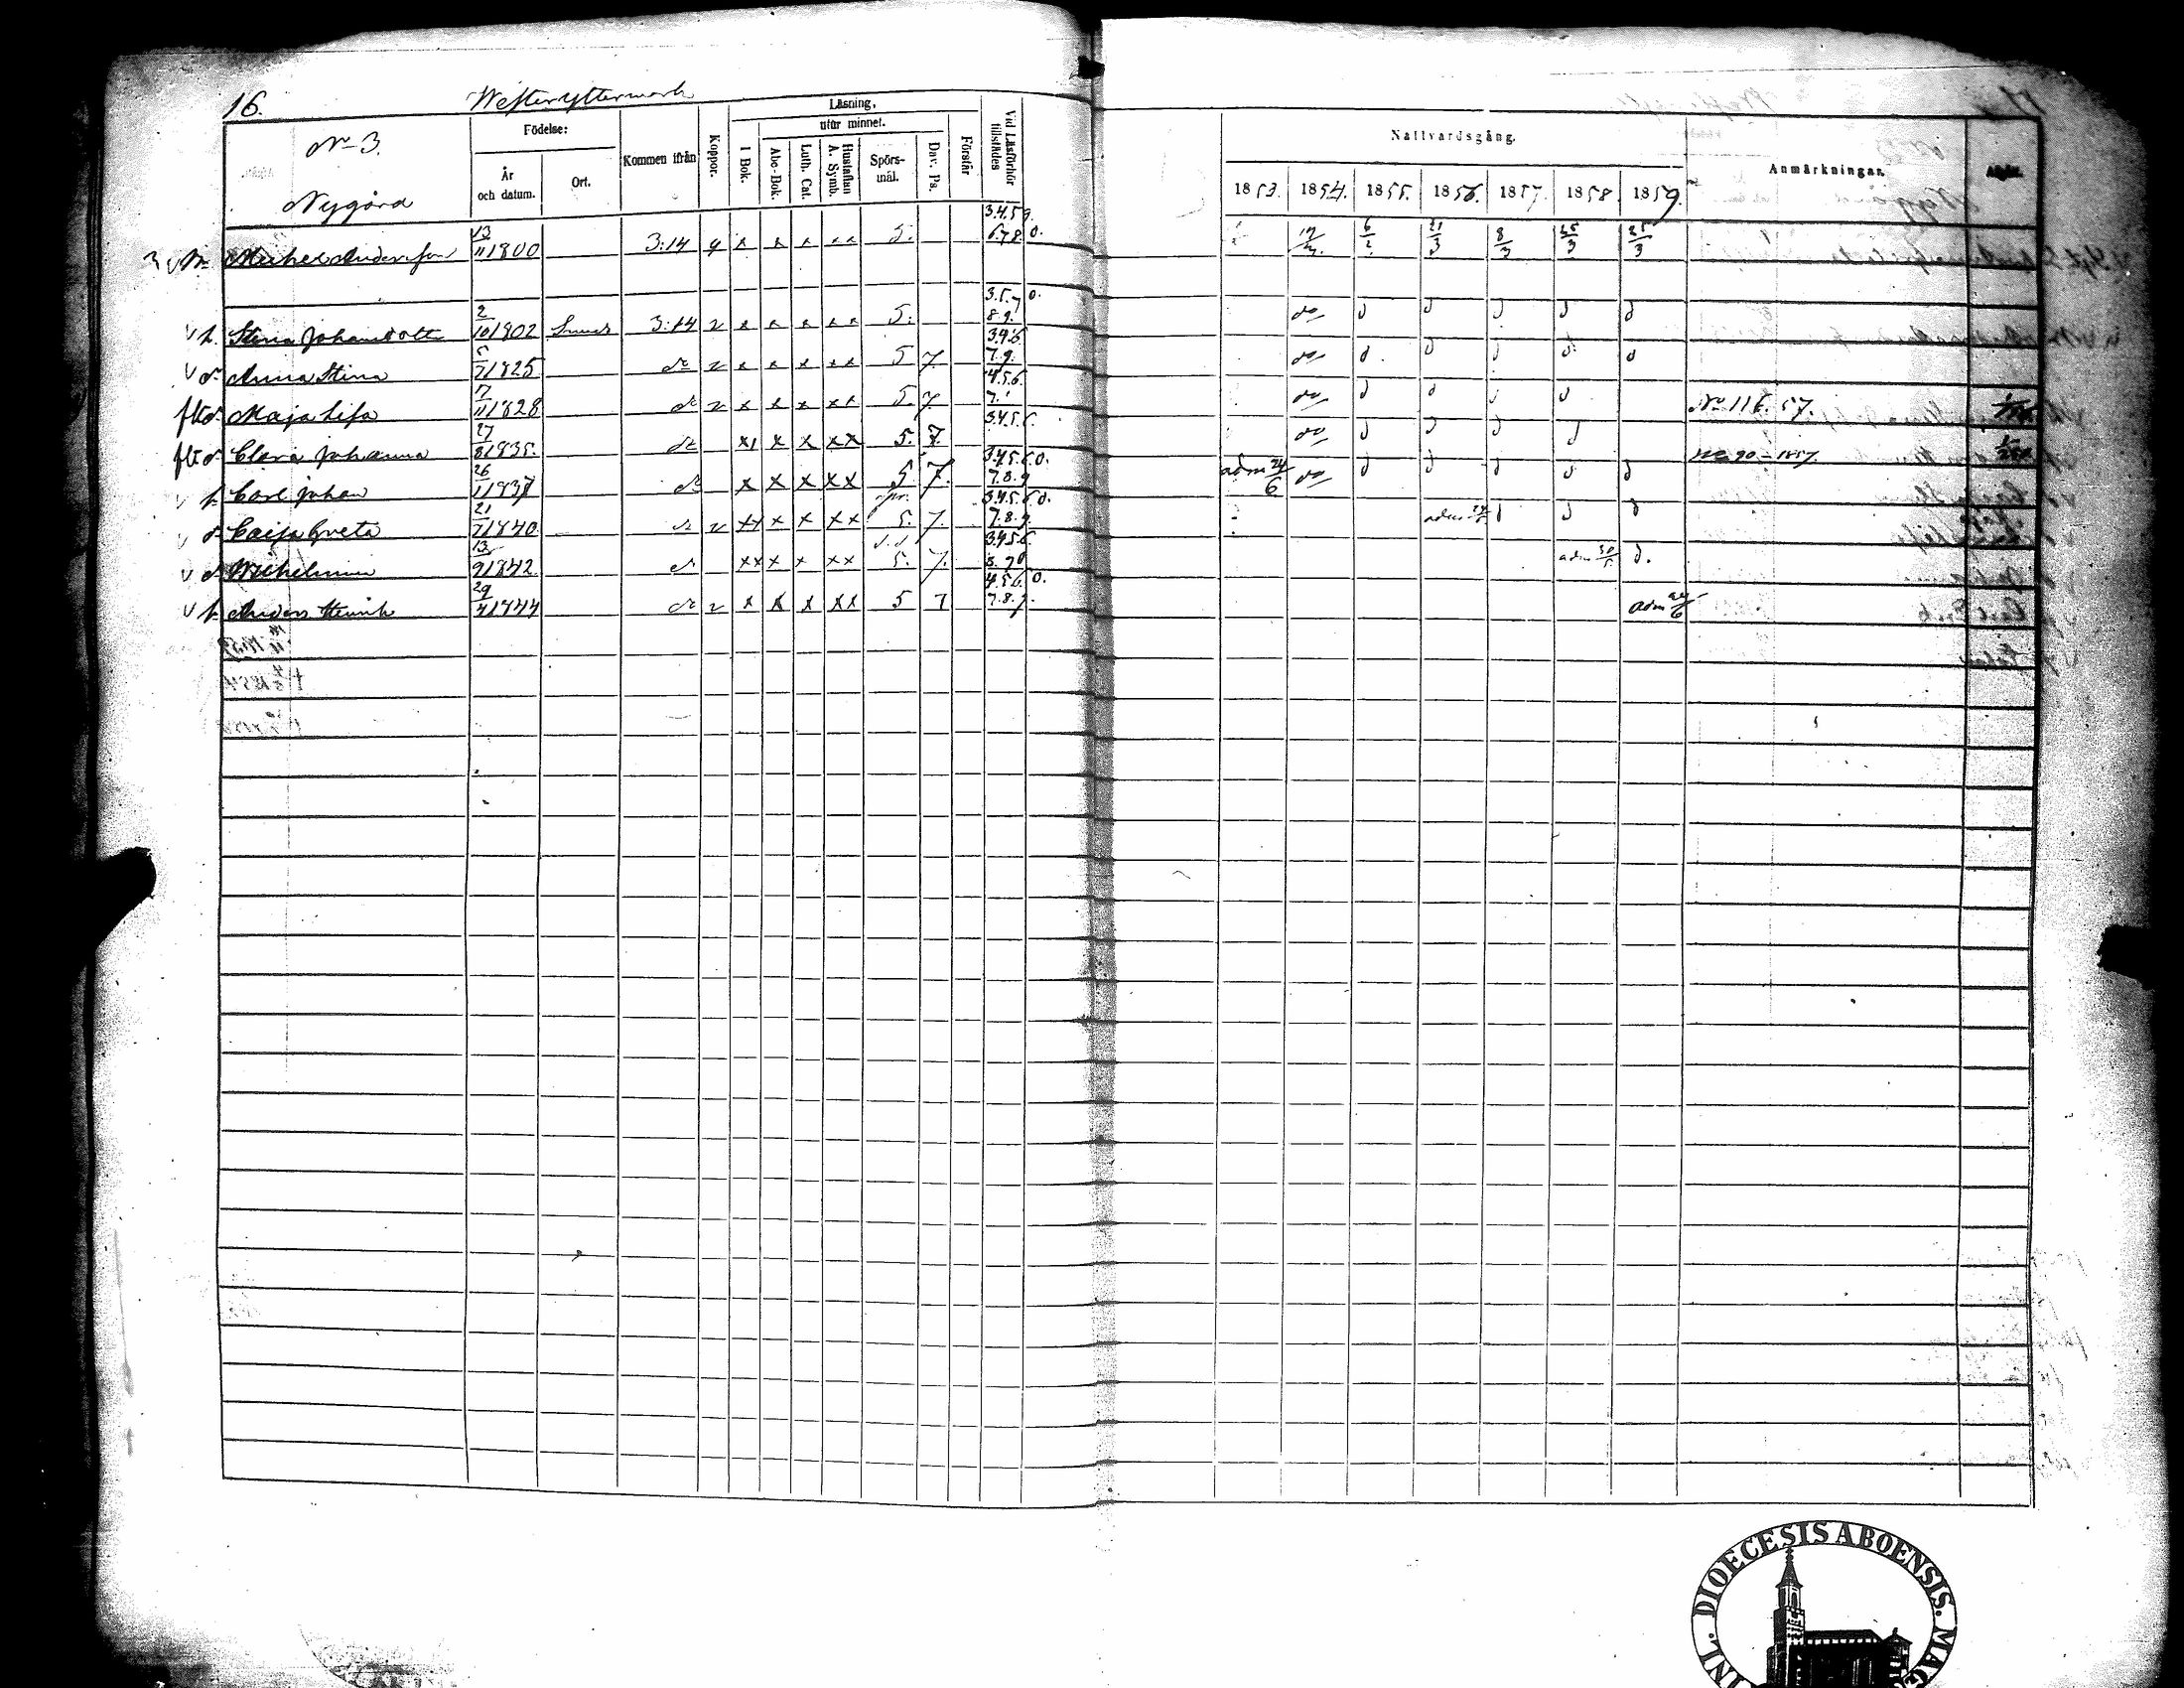 16. Westeryttermark
No 3.
Nygård
Födelse:
År och datum.
Ort.
Kommen ifrån
Koppor.
Läsning,
utur minnet.
I Bok.
Abc-Bok.
Luth. Cat.
Hustaflan A. Symb.
Spörs-mål.
Dav. Ps.
Förstår
Vid Läsförhör tillstädes
Nattvardsgång.
1853. 1854. 1855. 1856. 1857. 1858. 1859.
Anmärkningar.
Michel Andersson 13/11 1800 3:14 x x x x x 5. 3.4.5 6.7.8 0. 6/2 21/3 8/3 25/3 25/3
h. Stina Johansdotter 2/10 1802 3:14 v x x x x x 5. 3.5.7 0. 8.9. do d d d d d
d. Anna Stina 5/7 1825 do v x x x x x 5 7. 3.4.6. 7.9. do d d d d d
d. Maja Lisa 17/11 1828 do v x x x x x 5. 7 4.5.6. 7. do d d d d No 116. 57.
d. Clara Johanna 27/8 1835. do x x x x x 5. 7. 3.4.5.6. do d d d d No 90 - 1857.
Carl Johan 26/1 1837 do x x x x x 5 7. 3.4.5.6.0. 7.8.9 adm 24/6 do d d d d d
d. Caisa Greta 21/7 1840. do v xx x x x x 5. 7. 3.4.5.6.0. 7.8.9. adm d d d
d. Wilhelmina 13/9 1842. do xx x x x x 5. 7. 3.4.5.6. adm 30/5 d.
Anders Henrik 29/4 1844 do v x x x x x 5 7 4.5.6. 0. 7.8.9. adm
DIOECESIS ABOENSIS. MAG